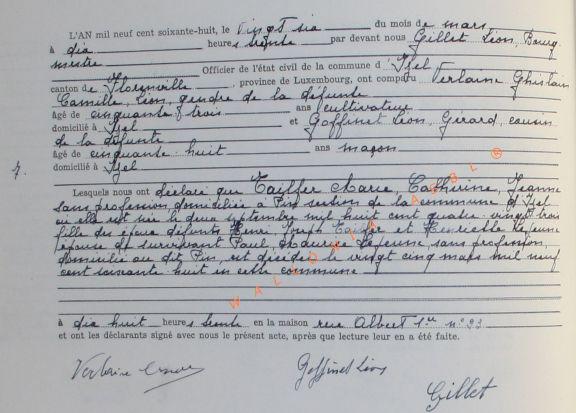 L'AN mil neuf cent soixante-huit, le Vingt six du mois de mars
à dix heures trente par devant nous Gillet Léon, Bourg-
mestre Officier de l'état civil de la commune d'Izel
canton de Florenville, province de Luxembourg, ont comparu Verlaine Ghislain
Camille, Léon, gendre de la défunte
âgé de cinquante trois ans cultivateur
domicilié à Izel et Goffinet Léon, Gérard, cousin
de la défunte
âgé de cinquante-huit ans maçon
domicilié à Izel
Lesquels nous ont déclaré que Tailfer Marie, Catherine, Jeanne
sans profession domiciliée à Pin section de la commune d'Izel
où elle est née le deux septembre mil huit cent quatre-vingt trois
fille des époux défunts Henri Joseph et Henriette Lejeune
épouse du survivant Paul Lejeune, sans profession,
domicilié au dit Pin, est décédée le vingt cinq mars mil neuf
cent soixante-huit en cette commune
à dix huit heures trente en la maison rue Albert 1er n° 93
et ont les déclarants signé avec nous le présent acte, après que lecture leur en a été faite.
Verlaine Goffinet Léon
Gillet
WALLONIA ASBL ®